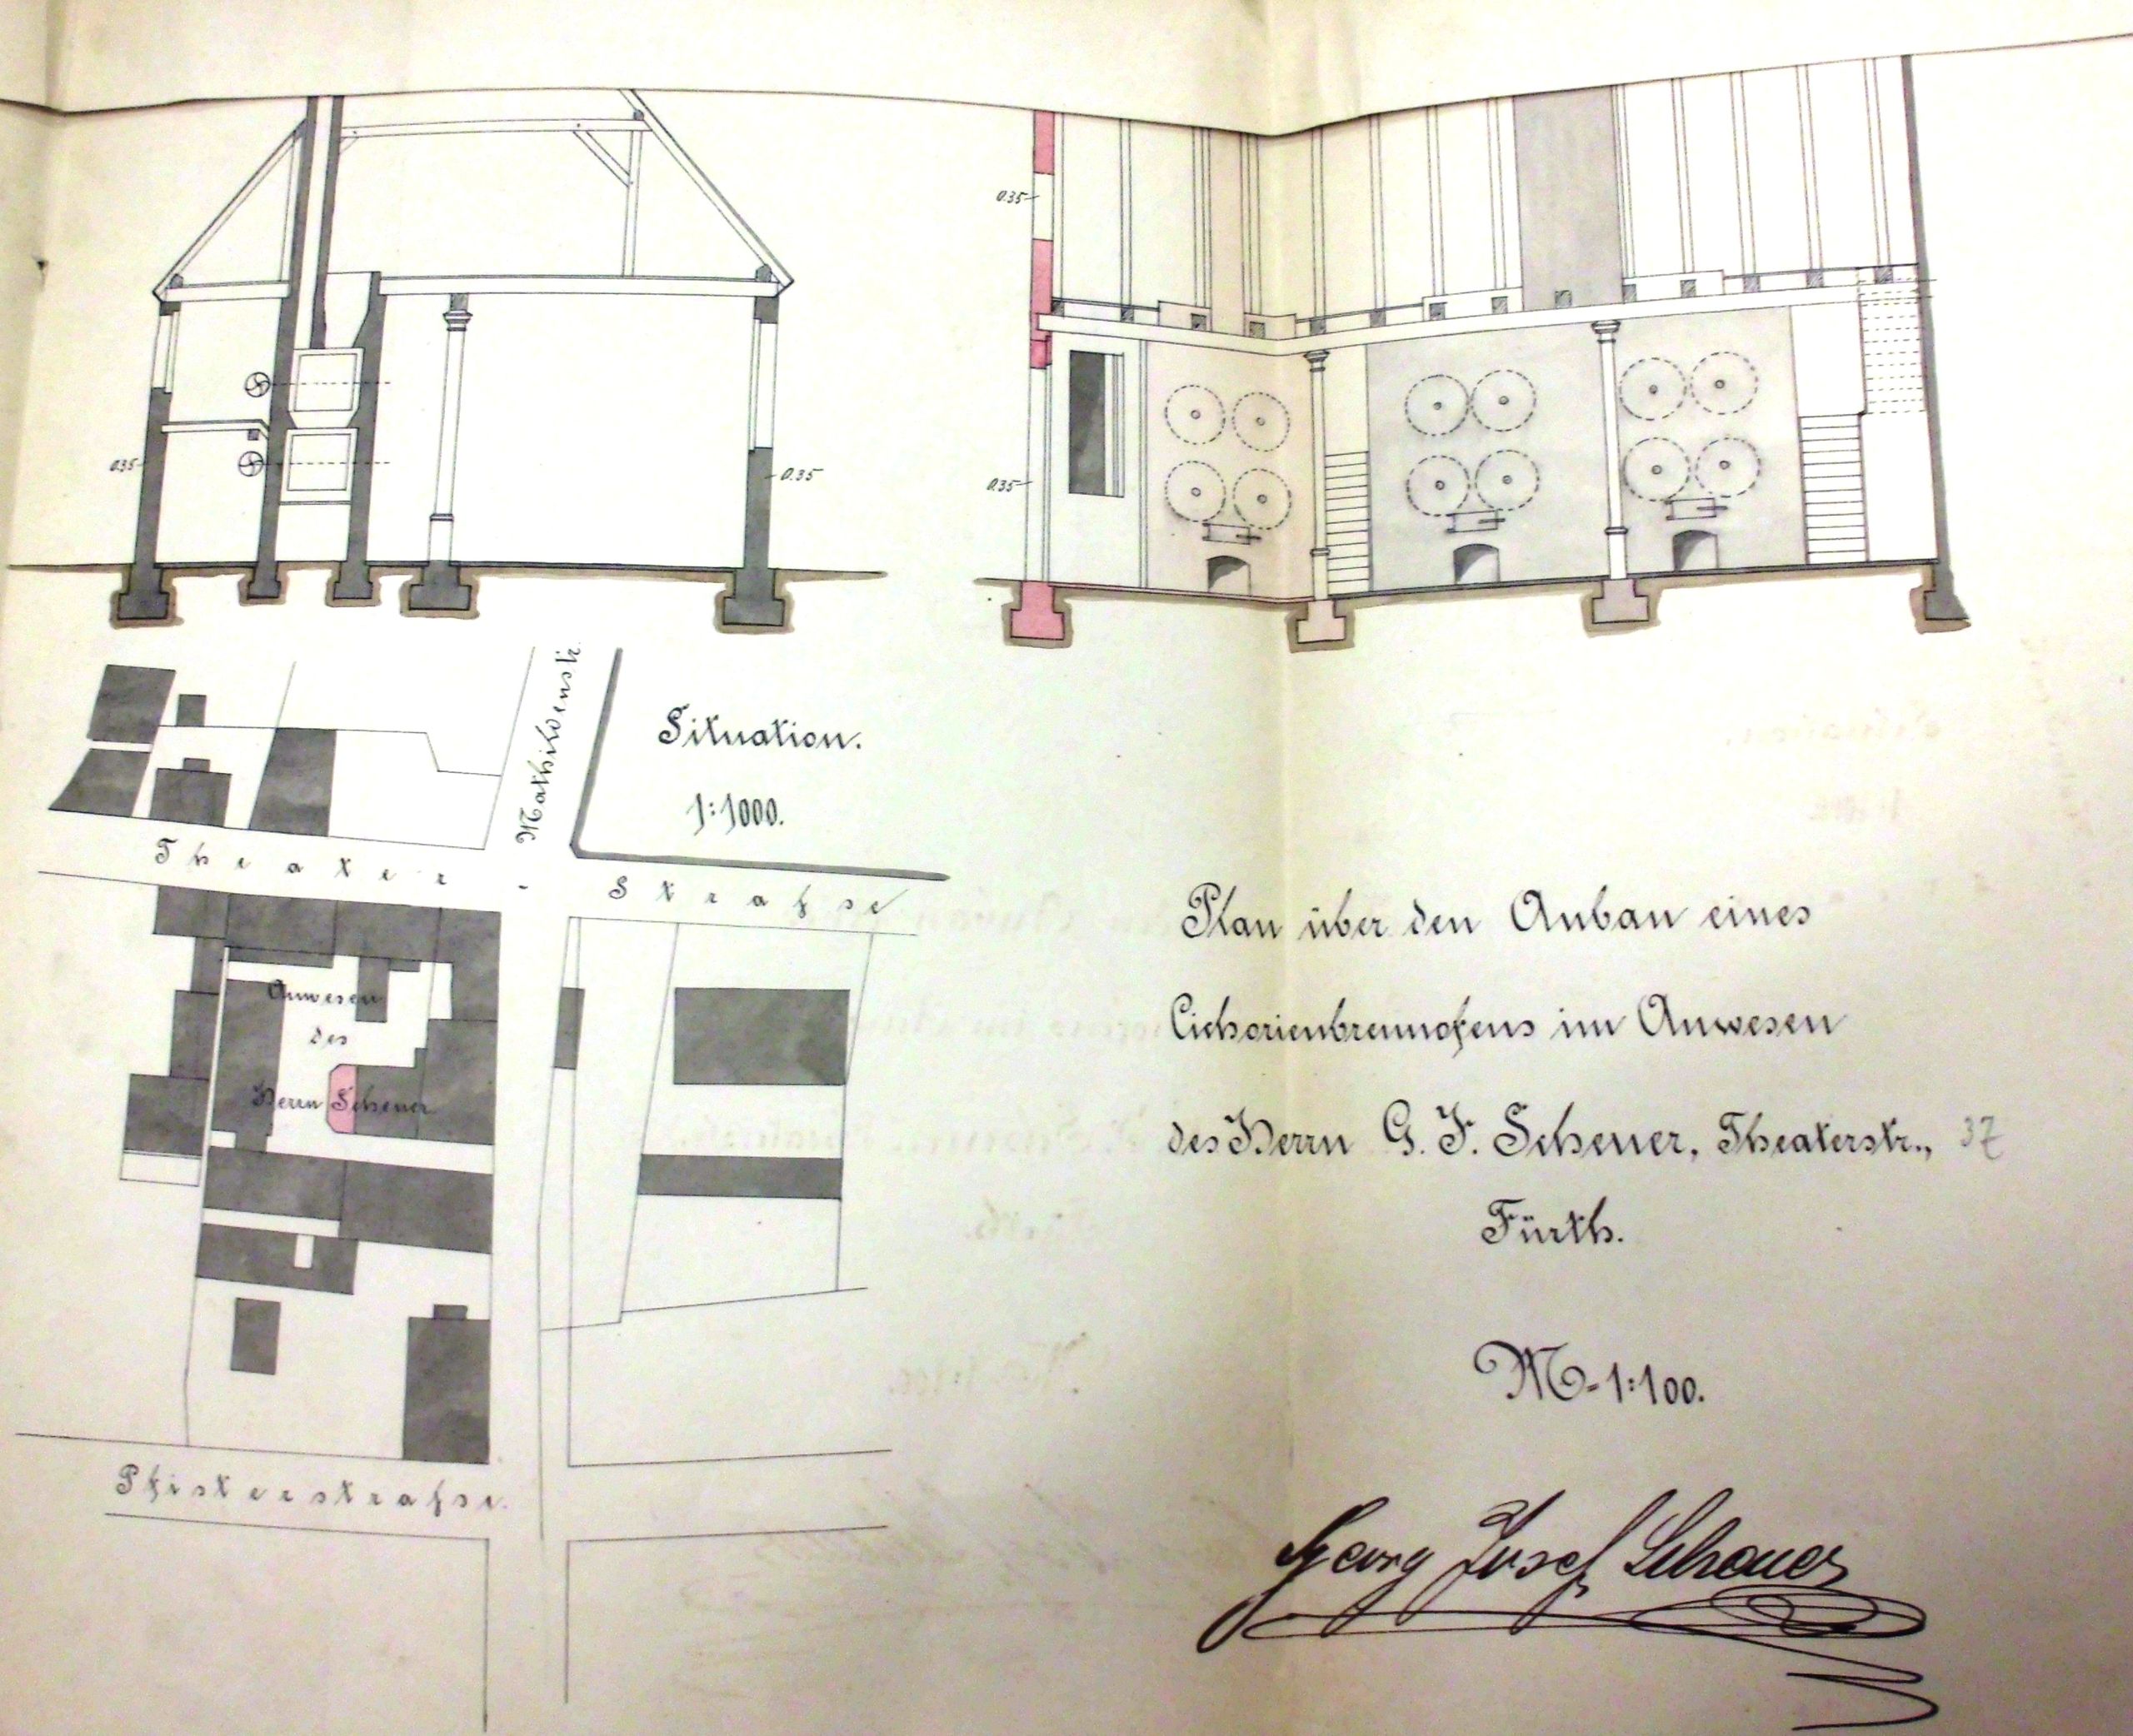 0.35
0.35
0.35
0.35
Mathildenstr.
Situation.
1:1000.
Theater - Strafse
Anwesen
des
Herrn Scheuer
Pfisterstrafse.
Plan über den Anbau eines
Cichorienbrennofens im Anwesen
des Herrn G. J. Scheuer, Theaterstr., 37
Fürth.
M-1:100.
Georg Josef Scheuer